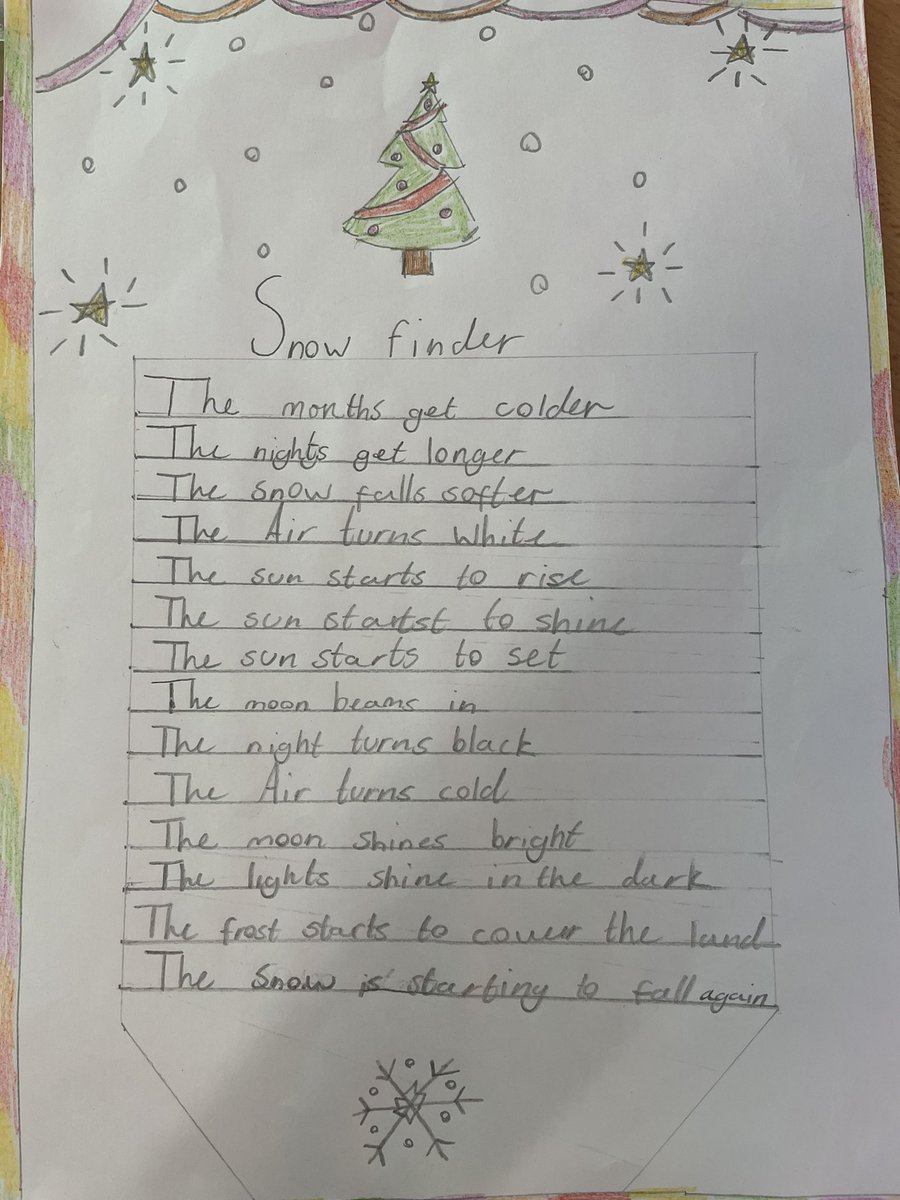 Snow finder
The months get colder
The nights get longer
The snow falls softer
The Air turns white
The sun starts to rise
The sun startst to shine
The sun starts to set
The moon beams in
The night turns black
The Air turns cold
The moon shines bright
The lights shine in the dark
The frost starts to couer the land
The Snow is starting to fall again